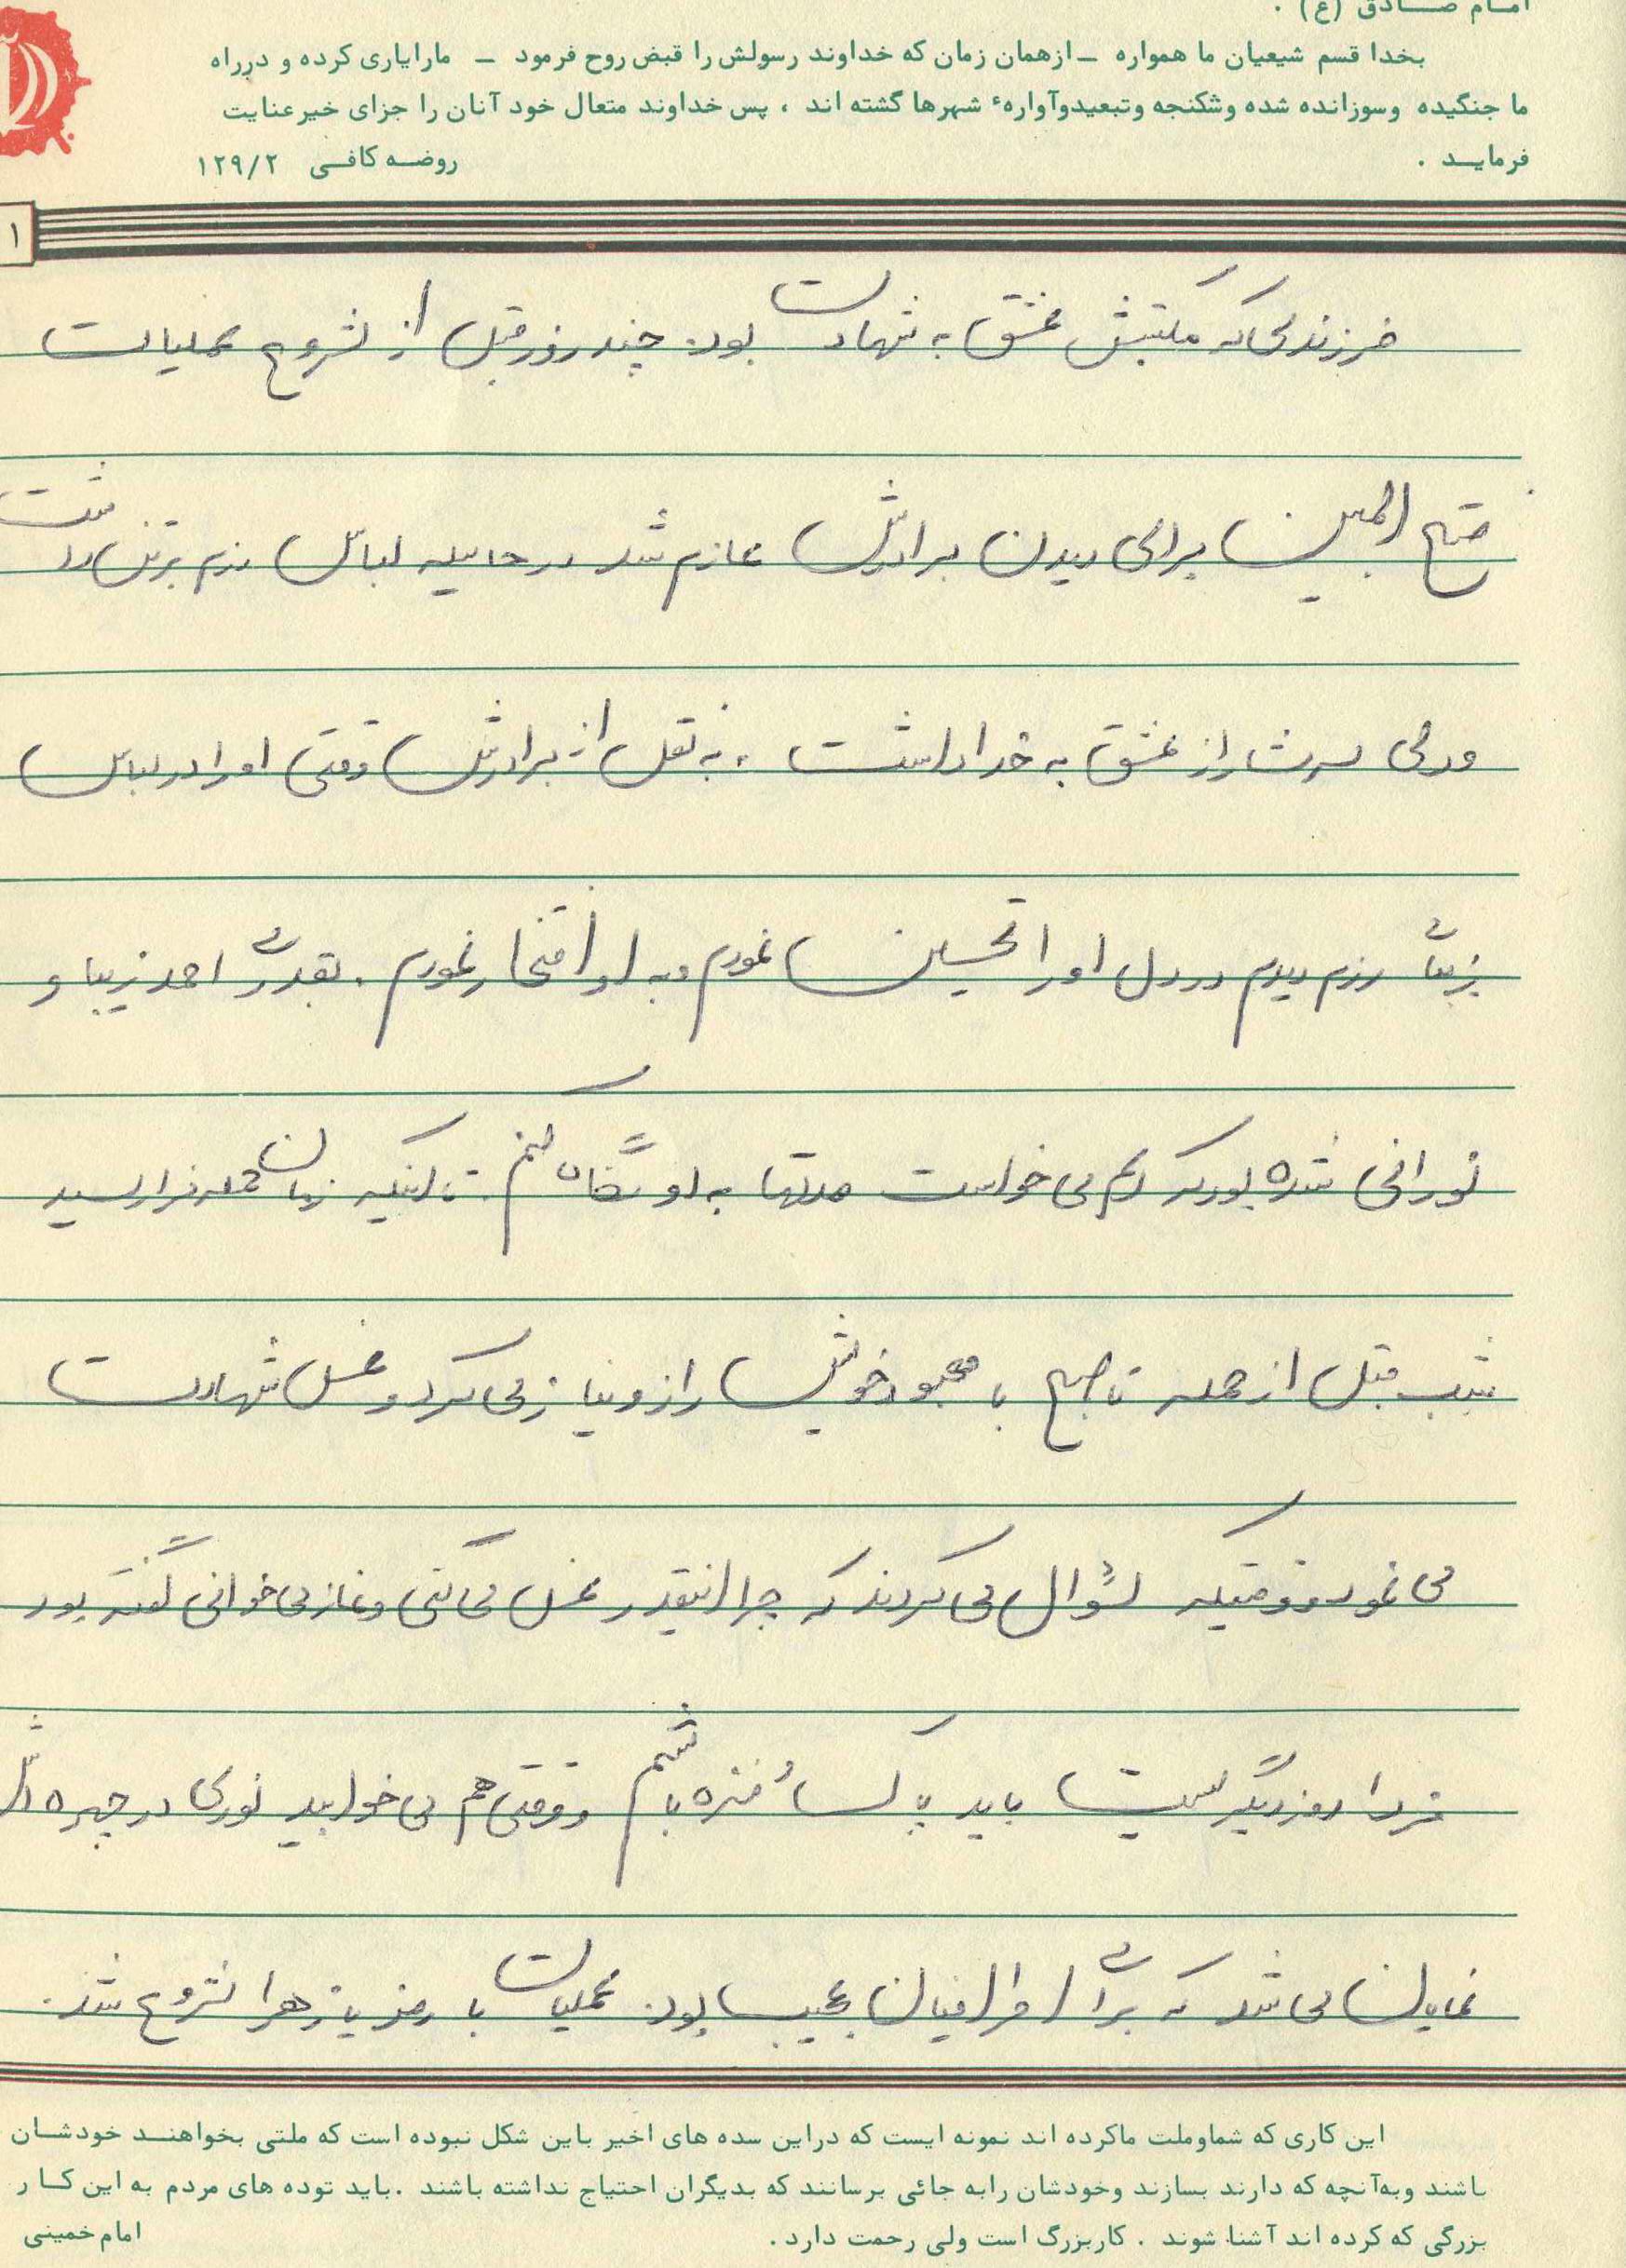 امام صادق (ع) .
بخدا قسم شیعیان ما همواره – ازهمان زمان که خداوند رسولش را قبض روح فرمود – مارایاری کرده و درراه
ما جنگیده وسوزانده شده وشکنجه وتبعیدوآوارهٔ شهرها گشته اند ، پس خداوند متعال خود آنان را جزای خیرعنایت
فرمایـد .
روضـه کافـی ۱۲۹/۲
۱
فرزندی که مکتبش عشق به شهادت بود. چند روز قبل از شروع عملیات
فتح المبین برای دیدن برادرش عازم شد در حالیکه لباس رزم برتن داشت
و دلی سرشار از عشق به خدا داشت ، به نقل از برادرش وقتی او را در لباس
زیبای رزم دیدم در دل او را تحسین نمودم و به او افتخار نمودم . بقدری احمد زیبا و
نورانی شده بود که دلم می خواست مدتها به او نگاه کنم . تا اینکه زمان حمله فرا رسید
شب قبل از حمله تا صبح با معبود خویش راز و نیاز می کرد و غسل شهادت
می نمود و وقتیکه سؤال می کردند که چرا اینقدر غسل می کنی و نماز می خوانی گفته بود
فردا روز دیگریست باید پاک و منزه باشم و وقتی هم می خوابید نوری در چهره اش
نمایان می شد که برای اطرافیان عجیب بود. عملیات با رمز یا زهرا شروع شد.
این کاری که شماوملت ماکرده اند نمونه ایست که دراین سده های اخیر باین شکل نبوده است که ملتی بخواهنـد خودشـان
باشند وبه‌آنچه که دارند بسازند وخودشان رابه جائی برسانند که بدیگران احتیاج نداشته باشند .باید توده های مردم به این کـار
بزرگی که کرده اند آشنا شوند . کاربزرگ است ولی رحمت دارد .
امام خمینی